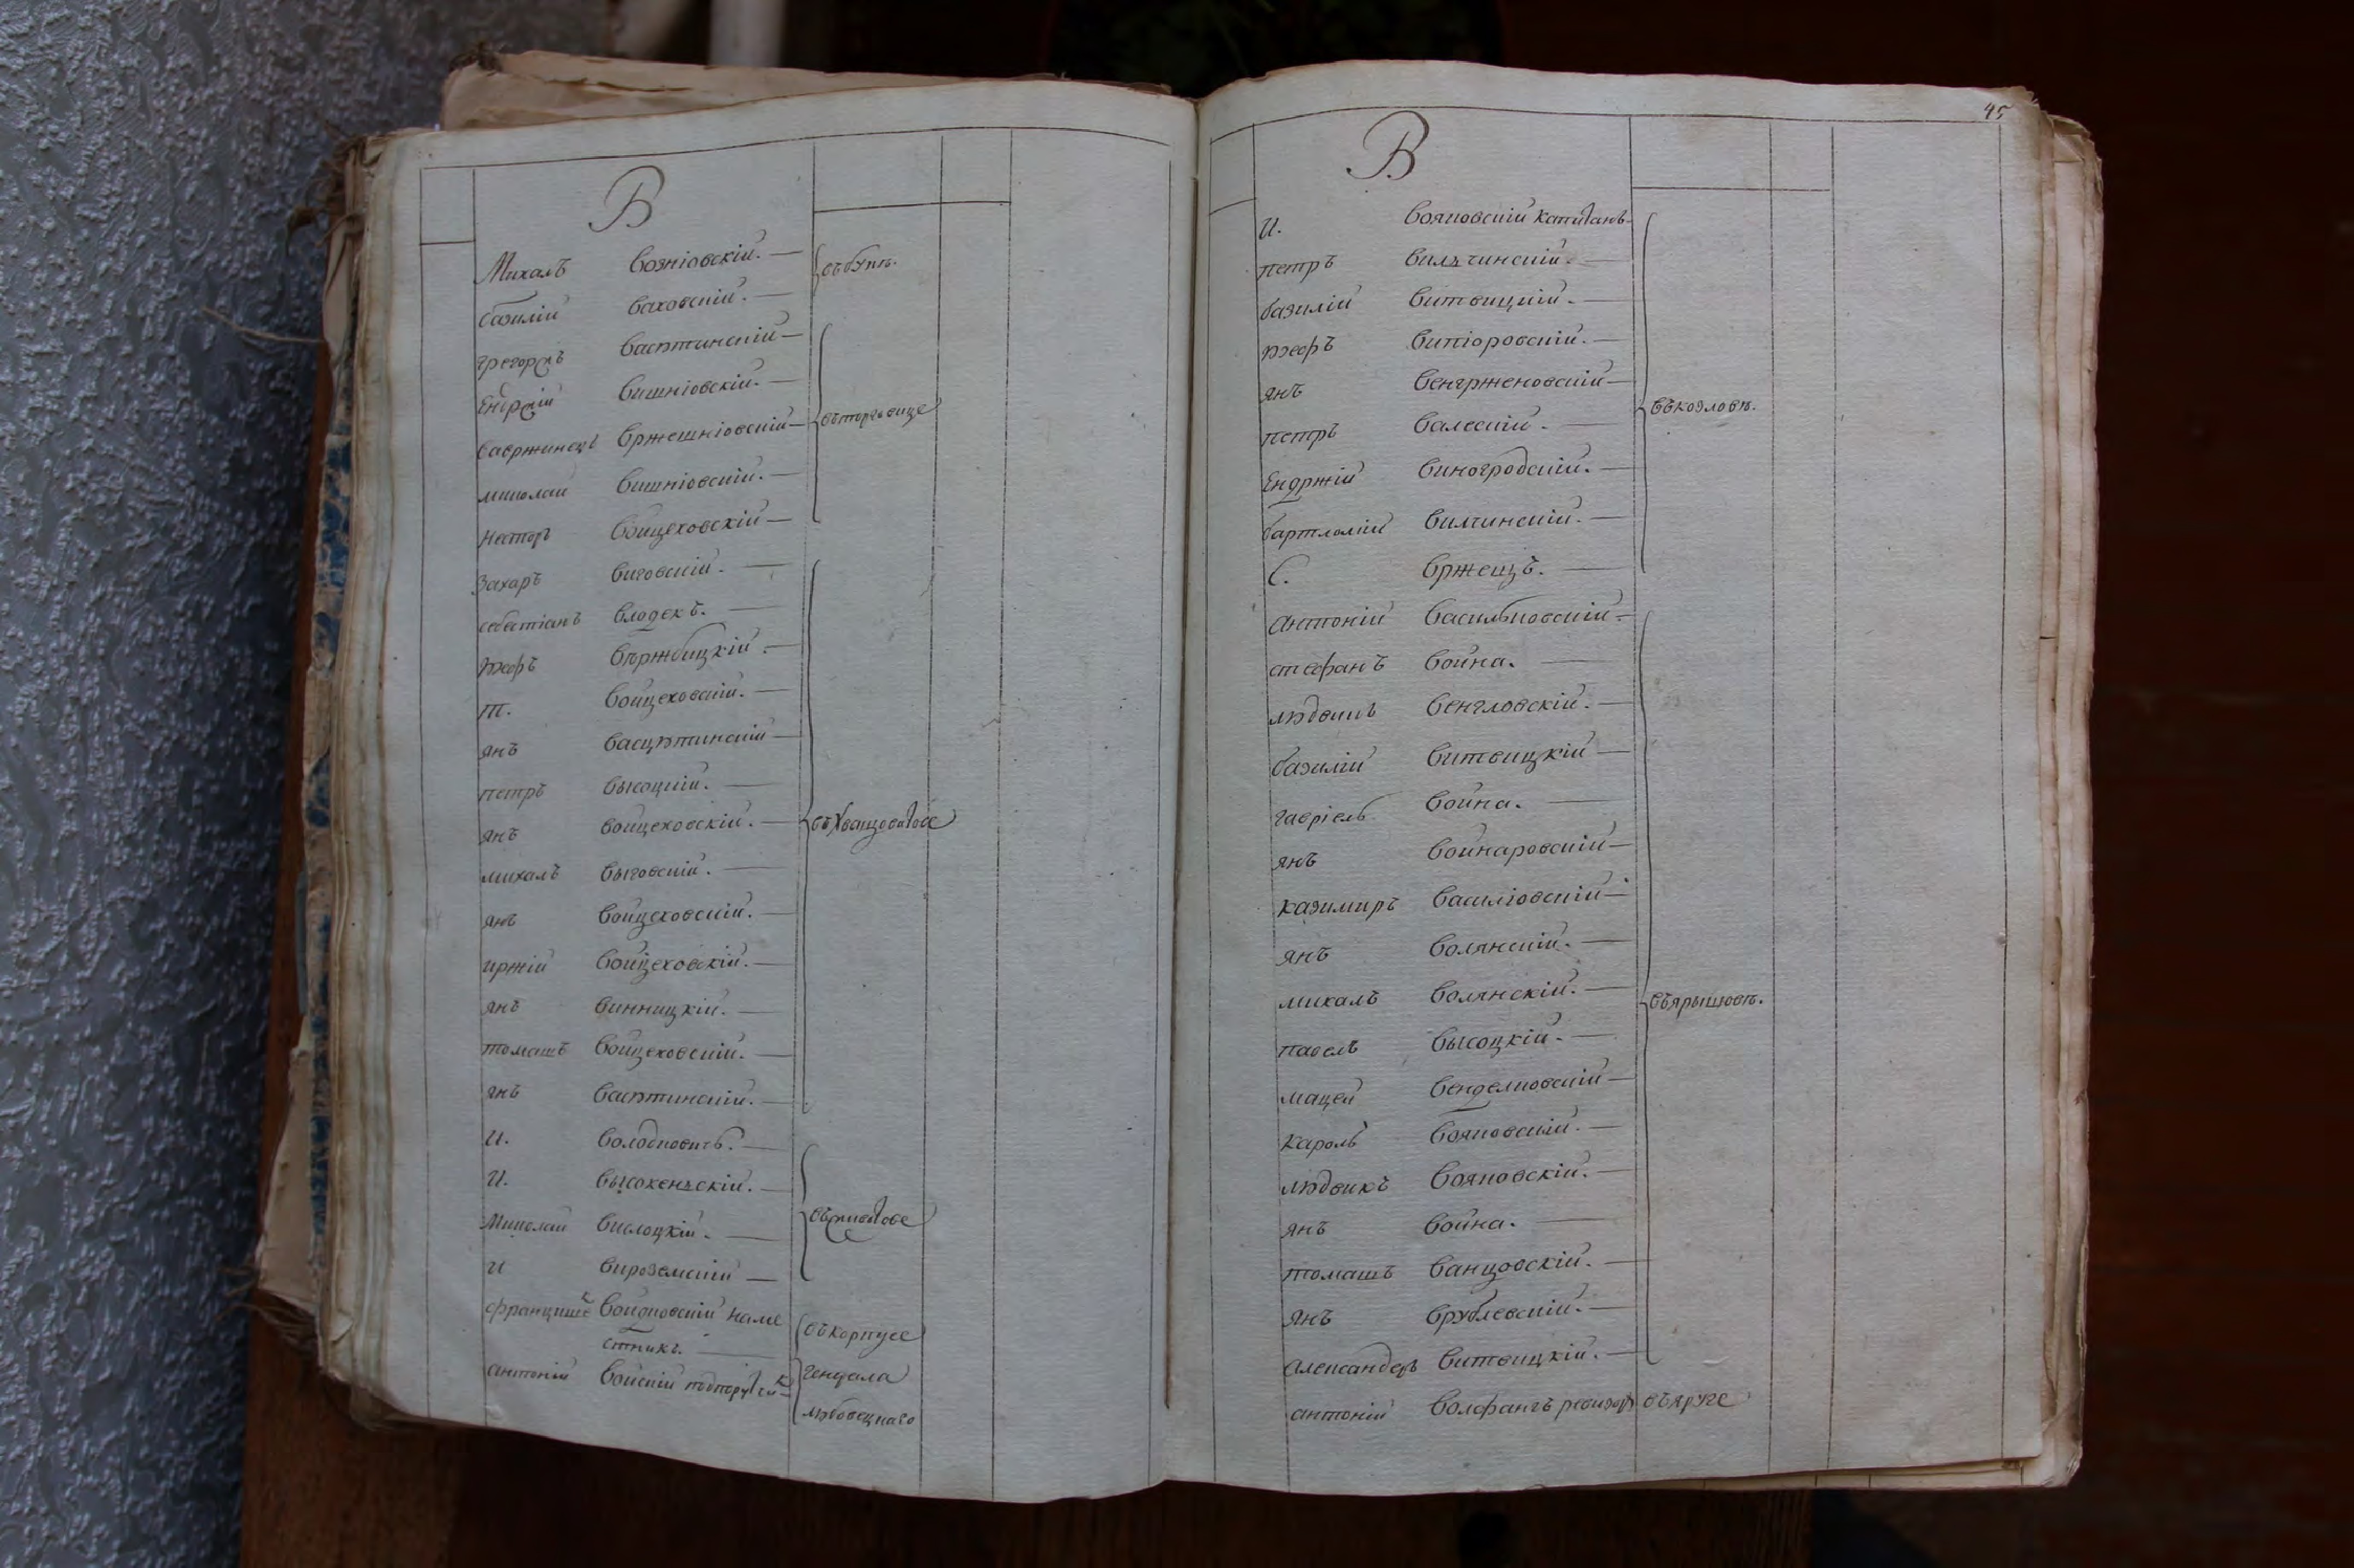 В
Михалъ Возніовскій. въ бупѣ.
базилійВаховскій.
грегоржъ Васютинскій
Ендржій Вишніовскій.
Вавржинецъ Вржешніовскій въ торговице
миколай Вишніовскій.
Несторъ Войцеховскій
Захаръ Виговскій.
себестіанъ Влодекъ.
Юзефъ Вѣржбицкій.
Т. Войцеховскій.
янъ Васцютинскій
петръ Высоцкій.
янъ Войцеховскій. въ Хванцоватове
михалъ Выговскій.
янъ Войцеховскій.
иржій Войцеховскій.
янъ Винницкій.
томашъ Войцеховскій.
янъ Васютинскій.
И. Володковичъ.
И. Высокенскій.
Миколай Вислоцкій.
И Вироземскій
францишекъ Войдковскій наме
стникъ. въ корпусе
антоній Войскій подпоручик генерала
любовецкаго
45
В
И. Вояковскій Капитанъ
петръ Вильчинскій.
базилій Витвицкій.
юзефъ Викторовскій.
янъ Венгрженовскій
въ козловѣ.
петръ Валескій.
Ендржій Виногродскій.
бартломій Вилчинскій.
С. Вржещъ.
Антоній Васильковскій
стефанъ Война.
людвикъ Венгловскій.
базилій Витвицкій
гавріель Война.
янъ Войнаровскій
казимиръ Василіовскій
янъ Волянскій.
михалъ Волянскій.
въ ярышовѣ.
павелъ Высоцкій.
мацей Венделковскій
Кароль Вояковскій.
людвикъ Вояковскій.
янъ Война.
томашъ Ванцовскій.
янъ Врублевскій.
Александеръ Витвицкій.
антоній Волфангъ ревизоръ въ яруге